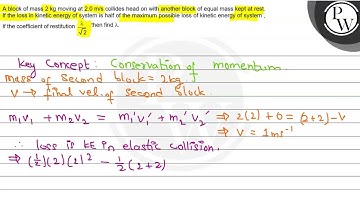 A block of mass 2 kg moving at 2.0 m/s collides head on with another block of equal mass kept at rest.
If the loss in kinetic energy of system is half of the maximum possible loss of kinetic energy of system ,
If the coefficient of restitution λ/√2 then find λ.
Key Concept: Conservation of momentum
mass of second block = 2kg.
V → final vel. of second block.
m₁v₁ + m₂v₂ = m₁'v₁' + m₂'v₂' ⇒ 2(2) + 0 = (2+2)-V
⇒ V = 1ms⁻¹
∴ loss is KE in elastic collision.
⇒ (1/2)(2)(2)² - 1/2(2+2)